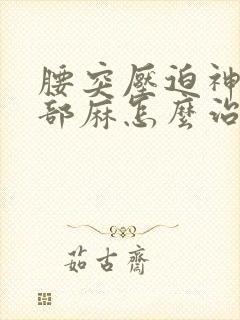 腰突壓迫神
部麻怎麼治
茹古齋